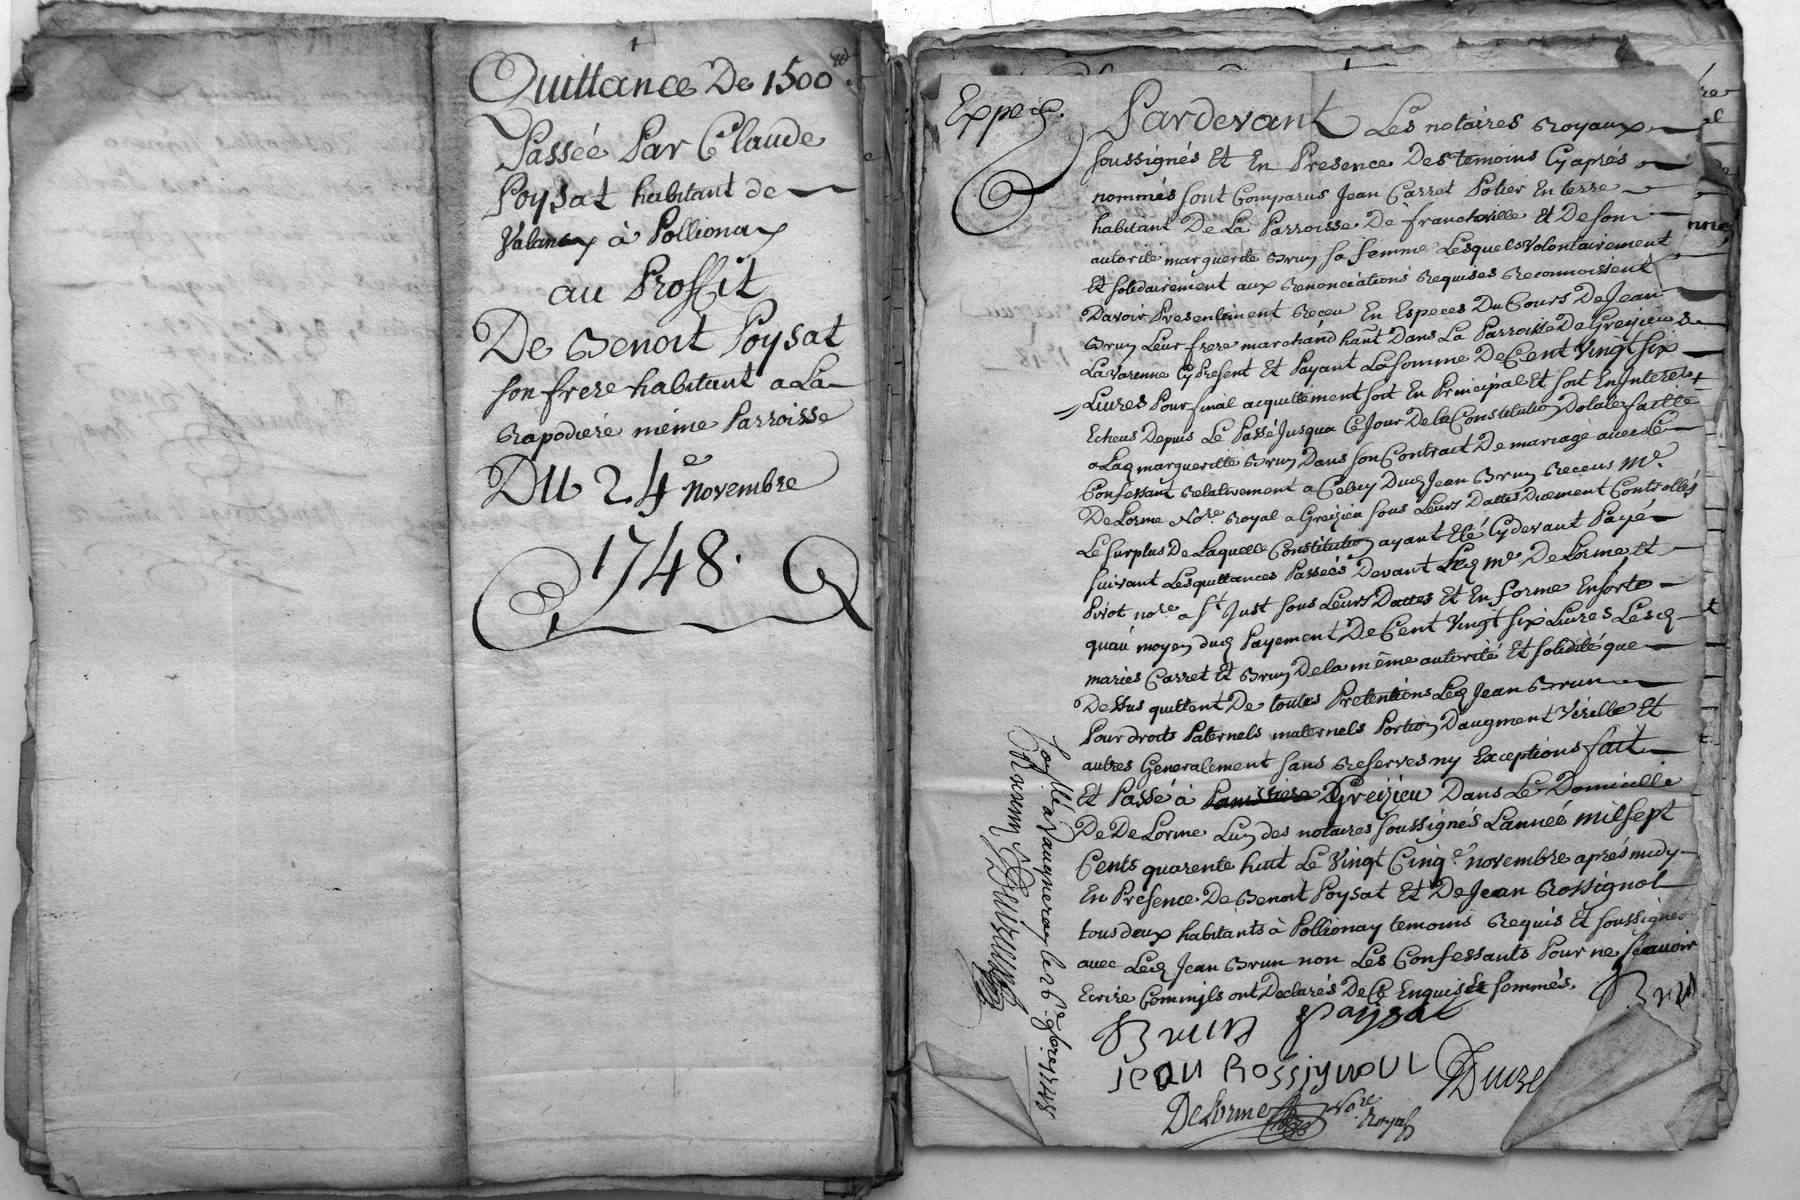 Quittance De 1500 ₶.
Passée Par Claude
Poysat habitant de
Valanex à Pollionax
au Proffit
De Benoit Poysat
son frere habitant a La
Rapodiere même Parroisse
Du 24e novembre
1748.
Exped.
Pardevant Les notaires Royaux
soussignés Et En Presence Des temoins Cyaprés
nommés sont Comparus Jean Carret Potier En terre
habitant De La Parroisse De francheville Et De son
autorité marguerite Brun sa femme Lesquels Volontairement
Et solidairement aux Renonciations Requises Reconnoissent
Davoir Presentement Receu En Especes Du Cours De Jean
Brun Leur frere marchand hant Dans La Parroisse De Greizieu
La Varenne Cy Present Et Payant La somme De Cent Vingt six
Livres Pour final acquittement soit En Principal Et soit En Interets
Echeus Depuis Le Passé Jusqua Ce Jour De la Constitution Dotale faitte
a Lad marguerite Brun Dans son Contract De mariage avec Le
Confessant Relativement a Celuy Dud Jean Brun Receus Me.
De Lorme Nore. Royal a Greizieu sous Leurs Dattes Duement Controllés
Le surplus De Laquelle Constitution ayant Eté Cydevant Payé
suivant Les quittances Passées Devant Led Me. De Lorme Et
Pirot nore. a St Just sous Leurs Dattes Et En forme Ensorte
quau moyen dud Payement De Cent Vingt six Livres Lesd
mariés Carret Et Brun De la même autorité Et solidité que
Dessus quittent De toutes Pretentions Led Jean Brun
Pour droits Paternels maternels Portion Daugment Virille Et
autres Generalement sans Reserves ny Exceptions fait
Et Passé à Greizieu Dans Le Domicille
De De Lorme Lun des notaires soussignés Lannée milsept
Cents quarente huit Le Vingt Cinqe. novembre aprés midy
En Presence De Benoit Poysat Et De Jean Rossignol
tous deux habitants à Pollionay temoins Requis Et soussignés
avec Led Jean Brun non Les Confessants Pour ne scavoir
Ecrire Commils ont Declarés De Ce Enquis Et sommés.
Brun
Brun Paysat
Jean Rossignoul
De Lorme Nore. Royal
Conllé à Vaugneray le 26e. 9bre 1748